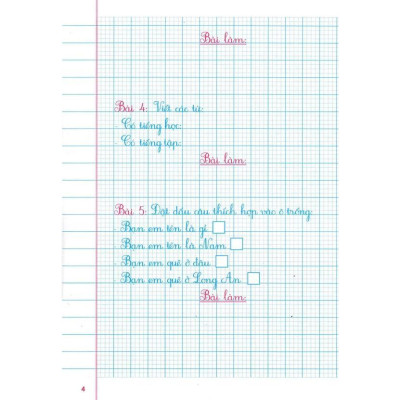 Bài làm:
Bài 4: Viết các từ:
- Có tiếng học:
- Có tiếng tập:
Bài làm:
Bài 5: Đặt dấu câu thích hợp vào ô trống:
- Bạn em tên là gì
- Bạn em tên là Nam
- Bạn em quê ở đâu
- Bạn em quê ở Long An
Bài làm:
4